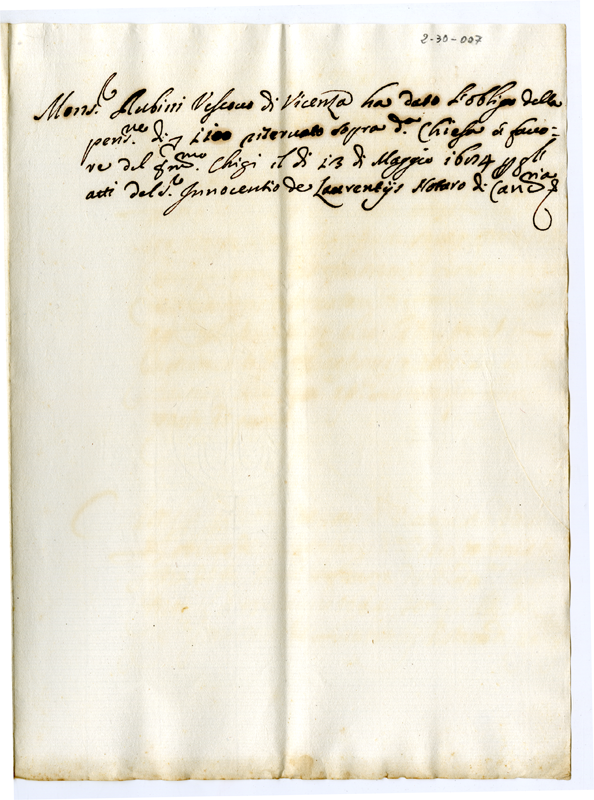 2-30-007
Mons.r Rubini Vescovo di Vicenza ha dato l'obligo della
pens.ne di 1100 riservato sopra d.a Chiesa à favo-
re del Chigi il dì 13 di Maggio 1684 gl'
atti del s.r Innocentio de Laurentijs Notaro di